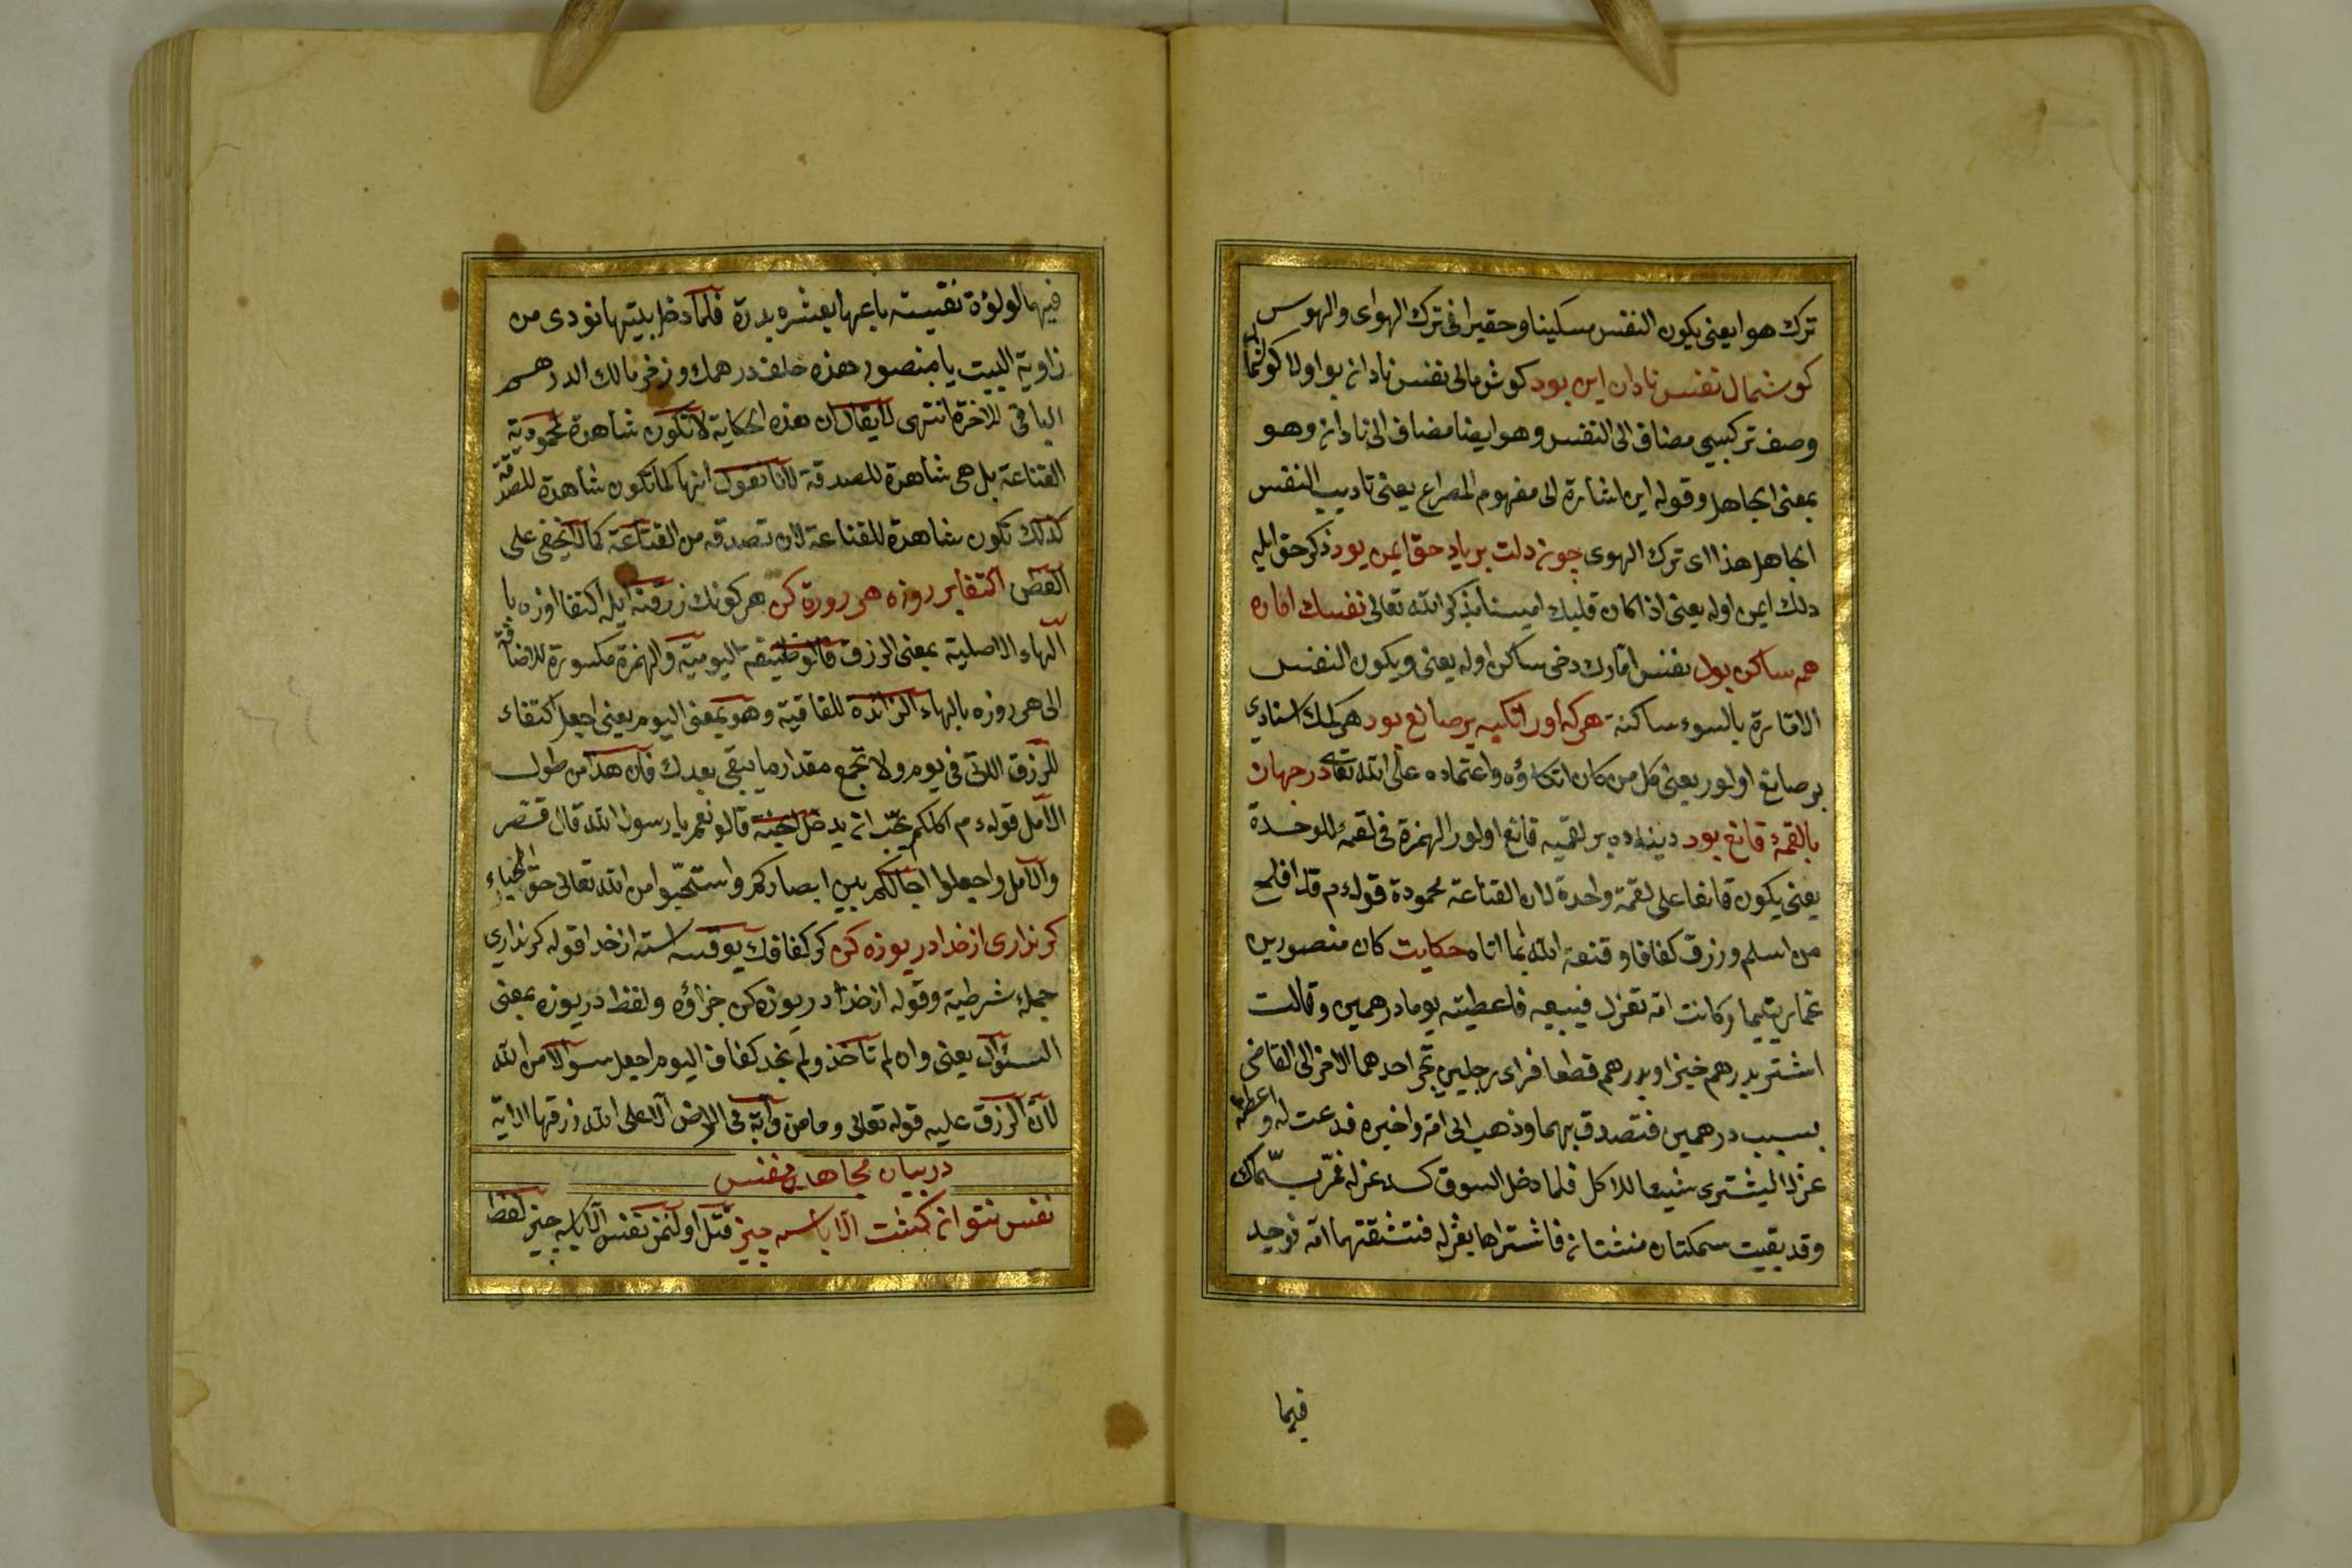 ترك هوا يعنى يكون النفس مسكينا وحقيرا فى ترك الهواى والهوس
كوشمال نفس نادان اين بود كوش مالى نفس نادانه بو اولا كوشمال
وصف تركيبى مضاف الى النفس وهو ايضا مضاف الى نادانه وهو
بمعنى الجاهل وقوله اين اشارة الى مفهوم المصراع يعنى تاديب النفس
الجاهل هذا اى ترك الهوى چونه دلت بر ياد حق ايمن بود ذكر حق ايله
دلك ايمن اوله يعنى اذا كان قلبك امينا بذكر الله تعالى نفسك اماره
هم ساكن بود نفس امارك دخى ساكن اوله يعنى ويكون النفس
الامارة بالسوء ساكنة هركه اورا تكيه بر صانع بود هر كمك استنادى
بر صانع اولور يعنى كل من كان اتكاؤه واعتماده على الله تعالى در جهان
بالقمۀ قانع بود دنياده بر لقميه قانع اولور الهمزة فى لقمۀ للوحدة
يعنى يكون قانعا على لقمة واحدة لان القناعة محمودة قوله م قد افلح
من اسلم ورزق كفافا وقنعه الله بما اتاه حكايت كان منصور بن
عمار يتيما وكانت امه تغزل فيبيعه فاعطيته يوما درهمين وقالت
اشتر بدرهم خبزا وبدرهم قطعا فراى رجلين تجر احدهما الاخر الى القاضى
بسبب درهمين فتصدق بهما وذهب الى امه واخبره فدعت له واعطته
غزلا ليشترى شيئا للاكل فلما دخل السوق كسد غزله فمر بسماك
وقد بقيت سمكتان منتنتانه فاشتراها بغزله فشقتهما امه فوجد
فيها
فيها لولؤة نفيسة باعها بعشره بدرة فلما دخل بيتها نودى من
زاوية البيت يا منصور هذه خلف درهمك وذخر مالك الدرهم
الباقى للاخرة انتهى لا يقال ان هذه الحكاية لا تكون شاهدة لمحمودية
القناعة بل هى شاهدة للصدقة لانا نقول انها كما تكون شاهدة للصدقة
كذلك تكون شاهدة للقناعة لان تصدقه من القناعة كما لا يخفى على
الفطن اكتفا بر روزه هر روزه كن هر كونك رزقنه ايله اكتفا روزه با
الهاء الاصلية بمعنى الرزق والوظيفة اليومية والهمزة مكسورة للاضافة
الى هر روزه بالهاء الزائدة للقافية وهو بمعنى اليوم يعنى اجعل اكتفاء
للرزق اللتى فى يوم ولا تجمع مقدار ما يبقى بعدك فان هذا من طول
الامل قوله م اكلكم يحب انه يدخل الجنة قالو نعم يا رسول الله قال قصر
والامل واجعلوا اجالكم بين ابصاركم واستحيوا من الله تعالى حق الحياء
كر ندارى از خدا دريوزه كن كر كفافك يوقسه استه از خدا قوله كر ندارى
جملۀ شرطية وقوله از خدا دريوزه كن جزاؤه ولفظ دريوزه بمعنى
السئوال يعنى وان لم تأخذ ولم تجد كفاف اليوم اجعل سوالا من الله
لان الرزق عليه قوله تعالى وما من دابة فى الارض الا على الله رزقها الاية
در بيان مجاهده نفس
نفس نتوانه كشت الا با سه چيز قتل اولنمز نفس الا بايه چيز لفظ